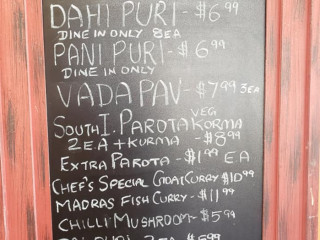 DAHI PURI - $6.99
DINE IN ONLY 8EA
PANI PURI - $6.99
DINE IN ONLY
VADA PAV - $7.99 3EA
SOUTH I. PAROTA VEG KORMA
2EA + KURMA - $8.99
EXTRA PAROTA - $1.99 EA
CHEF'S SPECIAL GOAT CURRY $10.99
MADRAS FISH CURRY - $11.99
CHILLI MUSHROOM - $5.99
PURI